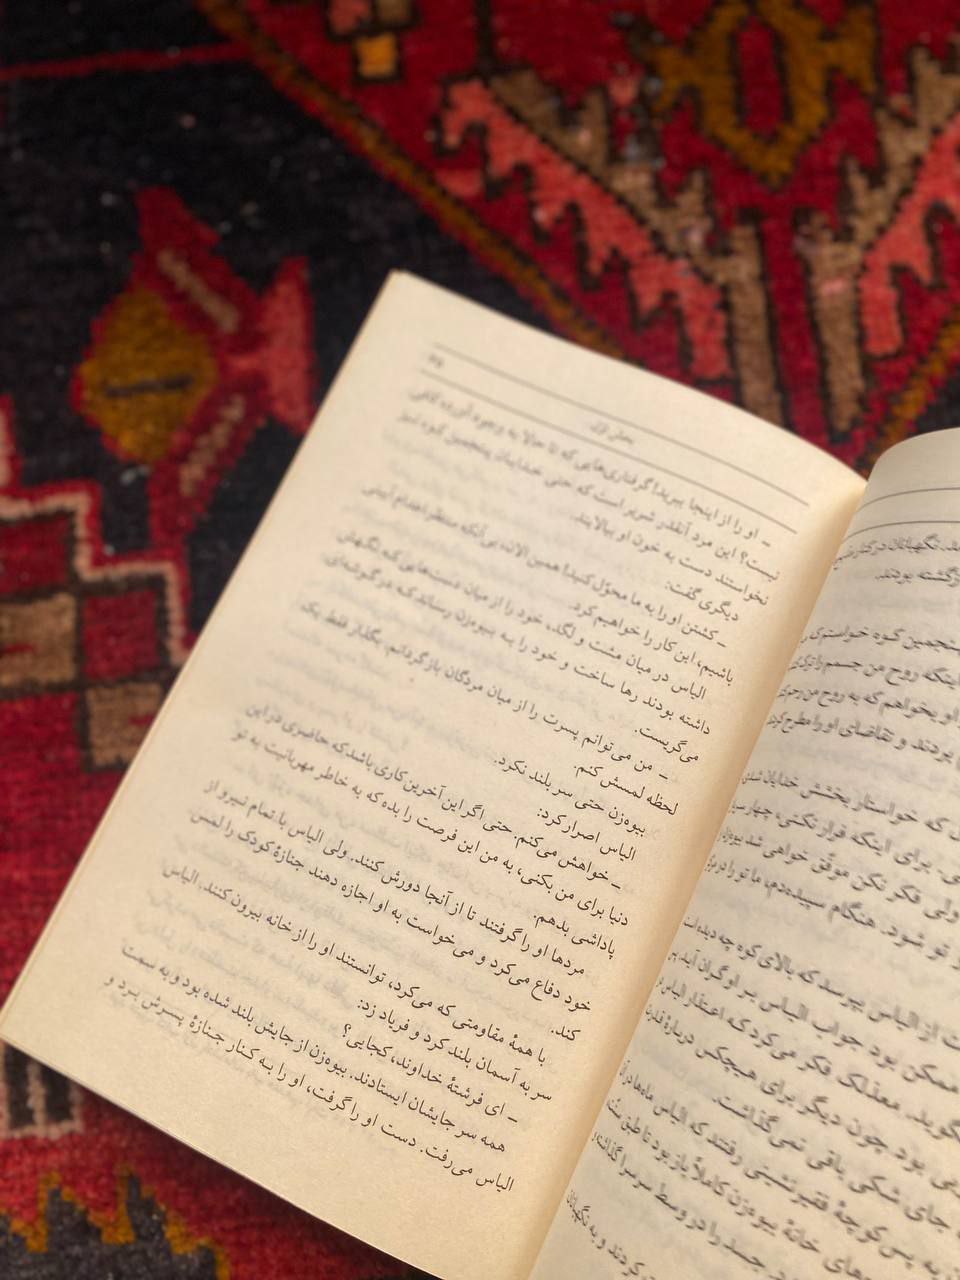 بخش اول
ـ او را از اینجا ببرید! گرفتاری‌هایی که تا حالا به وجود آورده کافی
نیست؟ این مرد آنقدر شریر است که حتی خدایان پنجمین کوه نیز
نخواستند دست به خون او بیالایند.
دیگری گفت:
ـ کشتن او را به ما محوّل کنید! همین الان، بی‌آنکه منتظر اعدام آیینی
باشیم، این کار را خواهیم کرد.
الیاس در میان مشت و لگد، خود را از میان دست‌هایی که نگهش
داشته بودند رها ساخت و خود را به بیوه‌زن رساند که در گوشه‌ای،
می‌گریست.
ـ من می‌توانم پسرت را از میان مردگان بازگردانم. بگذار فقط یک
لحظه لمسش کنم.
بیوه‌زن حتی سر بلند نکرد.
الیاس اصرار کرد:
ـ خواهش می‌کنم. حتی اگر این آخرین کاری باشد که حاضری در این
دنیا برای من بکنی، به من این فرصت را بده که به خاطر مهربانیت به تو
پاداشی بدهم.
مردها او را گرفتند تا از آنجا دورش کنند. ولی الیاس با تمام نیرو از
خود دفاع می‌کرد و می‌خواست به او اجازه دهند جنازهٔ کودک را لمس
کند.
با همهٔ مقاومتی که می‌کرد، توانستند او را از خانه بیرون کنند. الیاس
سر به آسمان بلند کرد و فریاد زد:
ـ ای فرشتهٔ خداوند، کجایی؟
همه سر جایشان ایستادند. بیوه‌زن از جایش بلند شده بود و به سمت
الیاس می‌رفت. دست او را گرفت، او را به کنار جنازهٔ پسرش برد و
نگهبانان در کنار
بازگشته بودند.
پنجمین کوه خواستم که
اینکه روح من جسمم را ترک
او بخواهم که به روح من رحم
بردند و تقاضای او را مطرح کردند
که خواستار بخشش خدایان شدی
برای اینکه فرار نکنی، چهار
ولی فکر نکن موفّق خواهی شد
تو شود. هنگام سپیده‌دم، ما تو را در برابر
از الیاس بپرسد که بالای کوه چه دیده است
ممکن بود جواب الیاس بر او گران آید.
بگوید. معذلک فکر می‌کرد که اعتقار الیاس
بود، چون دیگر برای هیچکس دربارهٔ قدرت
جای شکی باقی نمی‌گذاشت.
به پس کوچهٔ فقیرنشینی رفتند که الیاس ماه‌ها در آن
های خانهٔ بیوه‌زن کاملاً باز بود تا طبق سنّت
جسد را در وسط سرسرا گذاشته
کردند و به نگهبانان